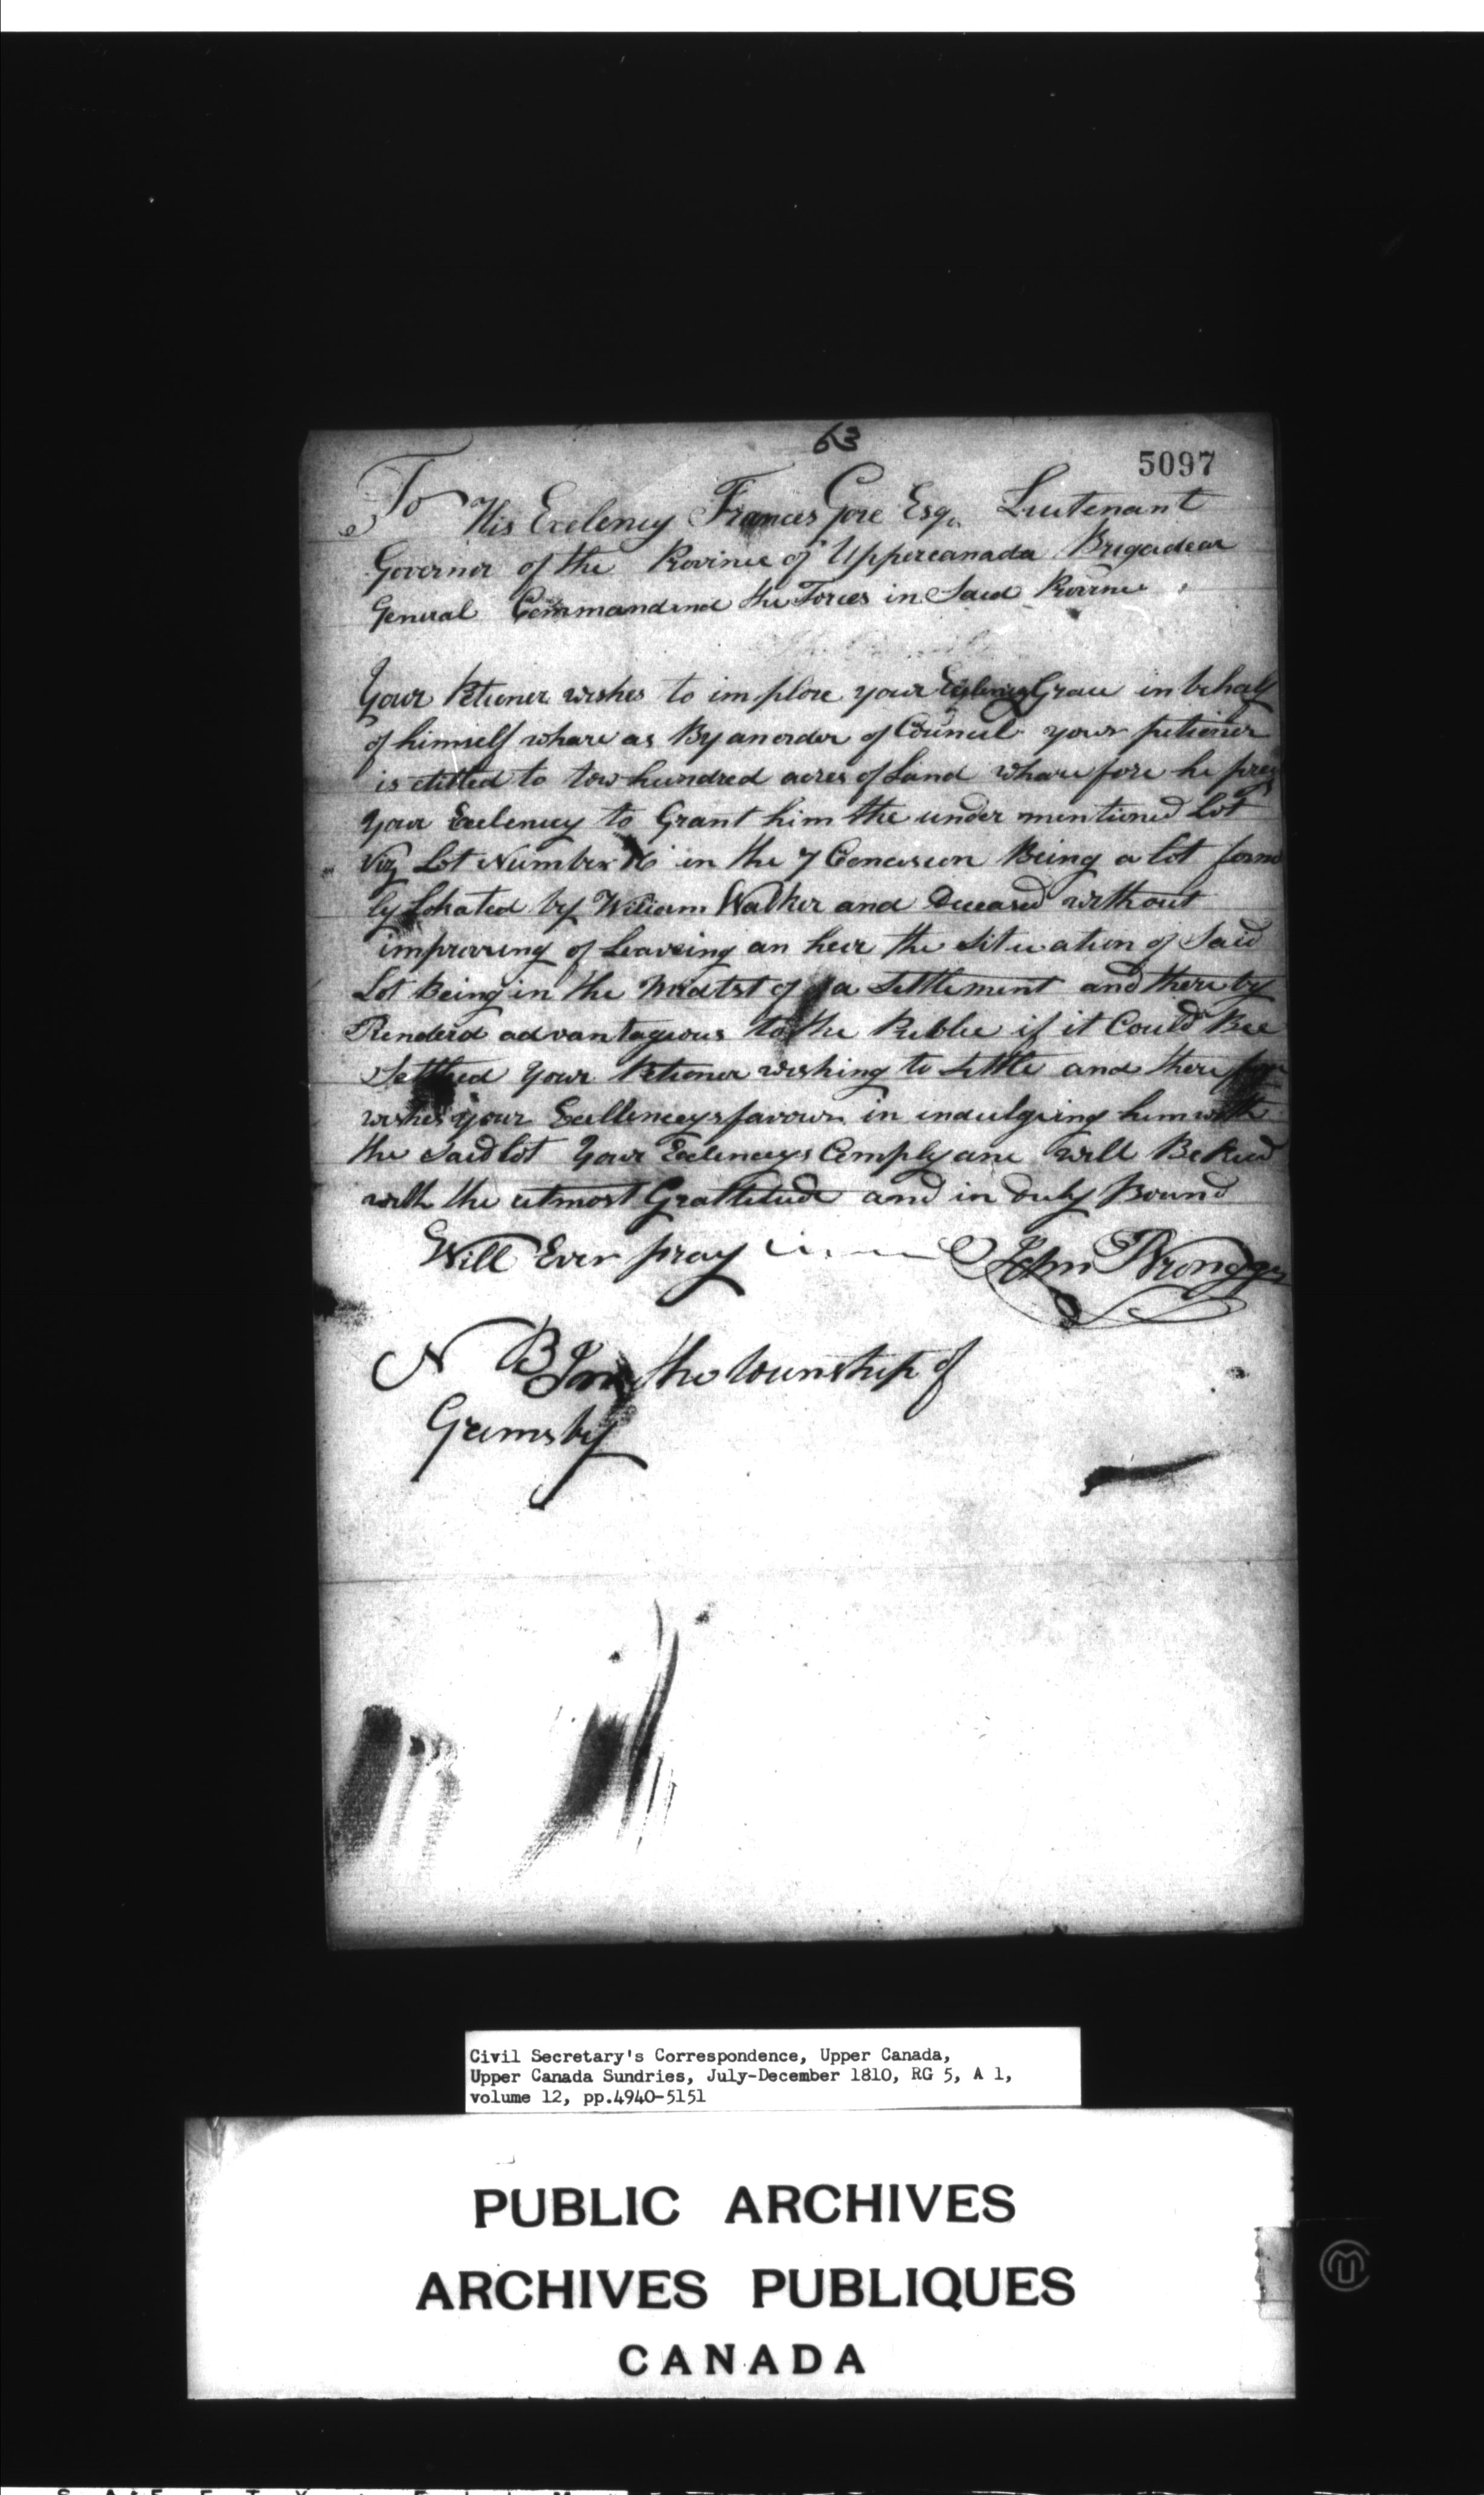 63
5097
To His Exelency Frances Gore Esq. Lieutenant
Governor of the Province of Uppercanada Brigadear
General Commandind the Forces in Said Province
Your Petioner wishes to implore your Grace in behalf
of himself whare as By an order of Council your petioner
is etitled to tow hundred acres of Land wharefore he prays
Your Exelency to Grant him the under mentioned Lot
Viz Lot Number in the 7 Concession Being a lot form
ly Lokated by William Walker and Deceasd without
improving of Leaveing an heir the Situation of Said
Lot Being in the Midtst of a Settlement and there by
Renderd advantagious to the Publie if it Could Bee
Settled Your Petioner wishing to Settle and there
wishes your Excellenceys favour in indulging him with
the Said lot Your Exelenceys Complyanc will Be
with the utmost Gratitude and in duty Bound
Will Ever pray John
N B In the township of
Grimsby
Civil Secretary's Correspondence, Upper Canada,
Upper Canada Sundries, July-December 1810, RG 5, A 1,
volume 12, pp.4940-5151
PUBLIC ARCHIVES
ARCHIVES PUBLIQUES
CANADA